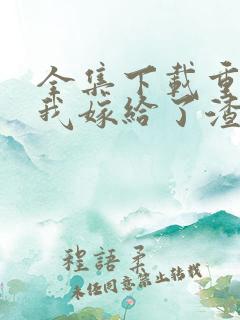 全集下載重
我嫁給了渣
程語柔
未经同意禁止转载